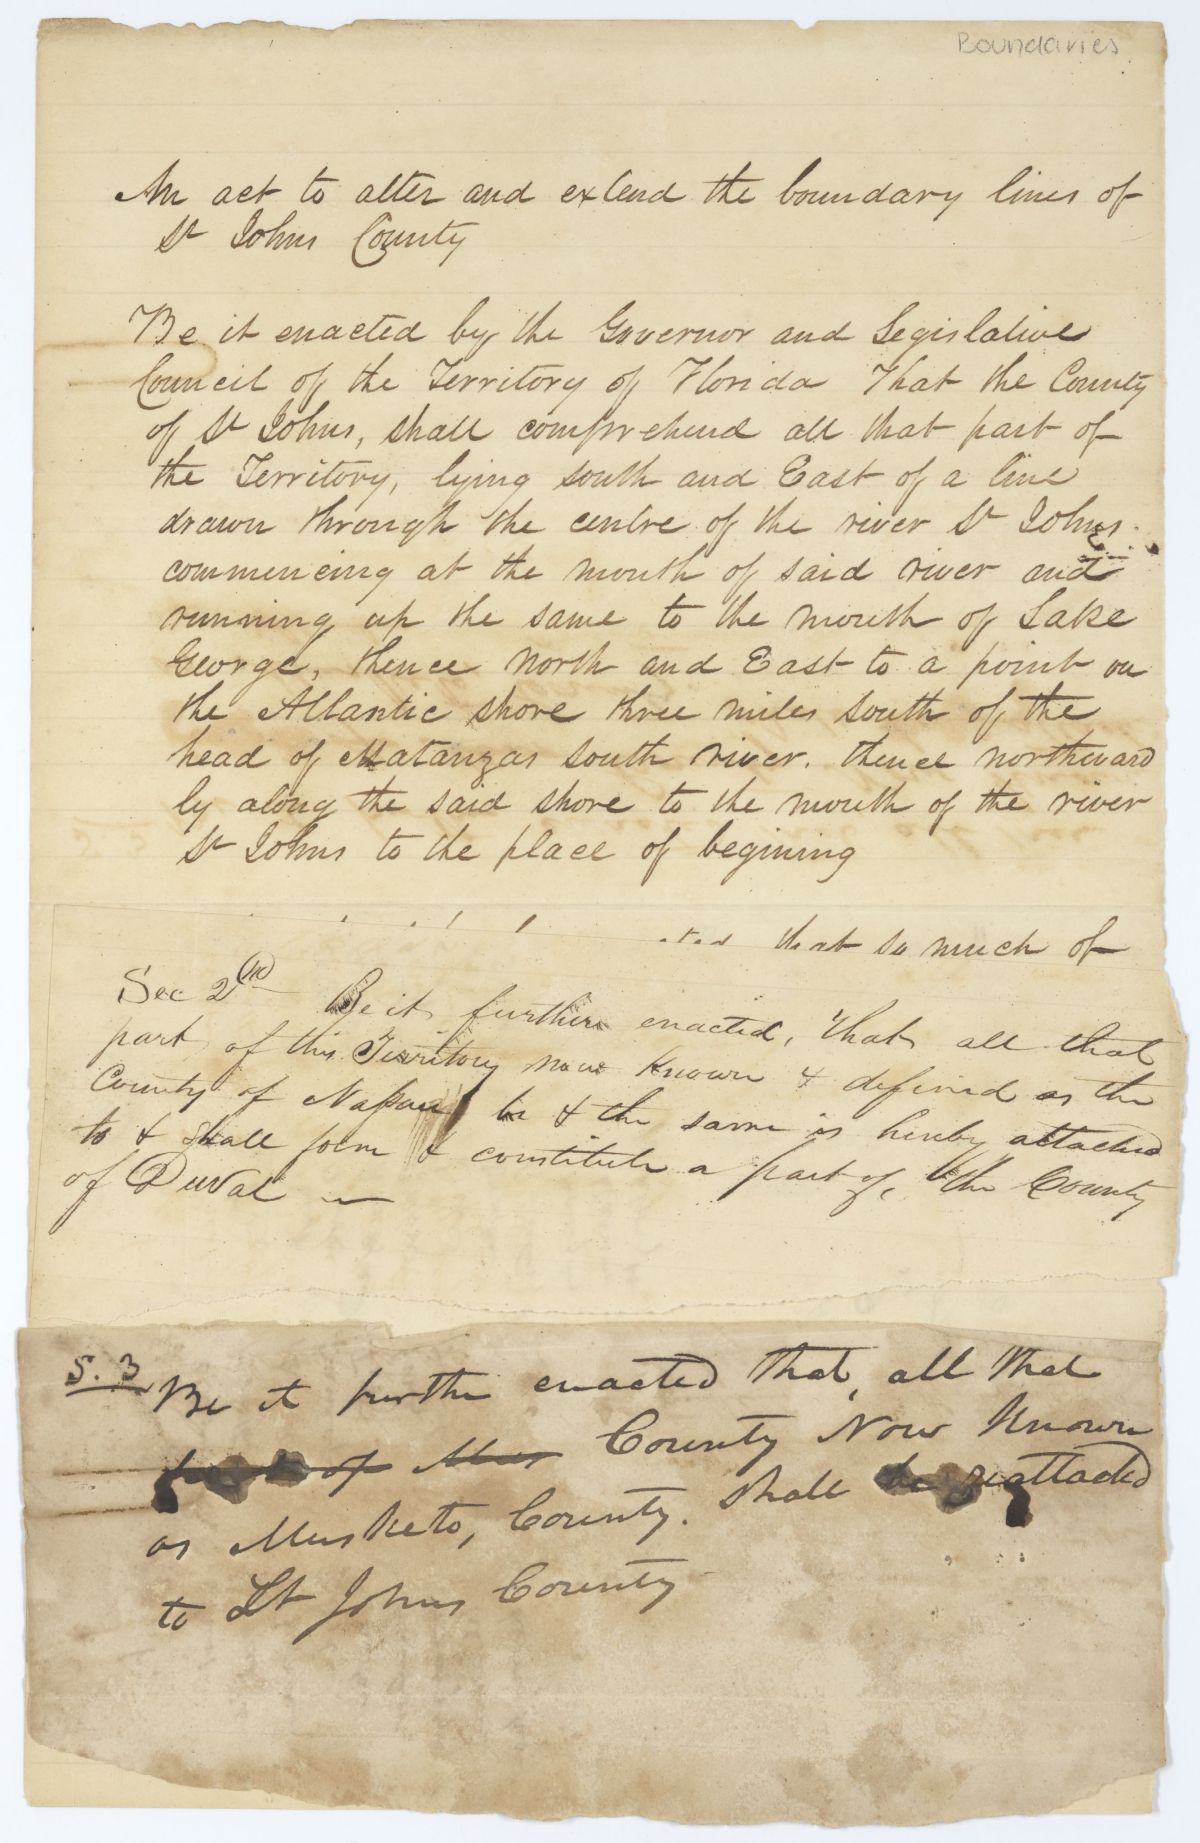 Boundaries
An act to alter and extend the boundary lines of
St Johns County
Be it enacted by the Governor and Legislative
Council of the Territory of Florida That the County
of St Johns, shall comprehend all that part of
the Territory, lying south and East of a line
drawn through the centre of the river St Johns
commencing at the mouth of said river and
running up the same to the mouth of Lake
George, thence North and East to a point on
the Atlantic shore three miles south of the
head of Matanzas south river. thence northward
ly along the said shore to the mouth of the river
St Johns to the place of begining
that so much of
Sec 2nd Be it further enacted, That all that
part of this Territory now known & defined as the
County of Nassau be & the same is hereby attached
to & shall form & constitute a part of, the County
of Duval
S. 3 Be it further enacted that, all that
County Now Known
as Musketo, County. shall be reattached
to St Johns County